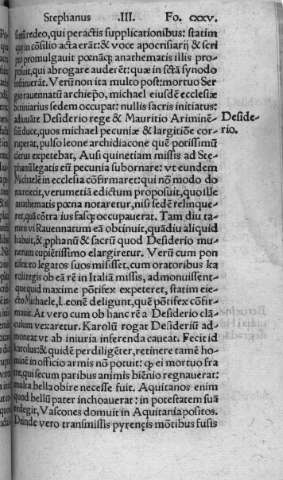 Stephanus .III. Fo. cxxv.
sistuREdeo, qui peractis supplicationibus: statim
quæ in cōsilio acta erāt: & voce apoensarij & scri
pto promulgauit pœnāq; anathematis illis pro-
posuit, qui abrogare auderēt: quæ in sctā synodo
Verū non ita multo post: mortuo Ser
gio rauennatū archiepō, michael eiusdē ecclesiæ
scriniarius sedem occupat: nullis sacris initiatus:
adiuuāte Desiderio rege & Mauritio Ariminē-
siū duce, quos michael pecuniæ & largitiōe cor-
ruperat, pulso leone archidiacone quē potissimū
clerus expetebat, Ausi quinetiam missis ad Ste-
phanū legatis eū pecunia subornare: vt eundem
Michaelē in ecclesia cōfirmaret: qui nō modo do
na reiecit, verumetiā edictum proposuit, quo ille
anathematis pœna notaretur, nisi sedē relinque-
ret, quā cōtra ius fasq; occupauerat. Tam diu ta-
men vi Rauennatum eā obtinuit, quādiu aliquid
habuit, & pphanū & sacrū quod Desiderio mu-
nerum cupiētissimo elargiretur. Verū cum pon
tifex eo legatos suos misisset, cum oratoribus ka
roli regis ob eā rē in Italiā missis, admonuissent-
que quid maxime pōtifex expeteret, statim eie-
cto Michaele, Leonē deligunt, quē pōtifex cōfir-
mauit. At vero cum ob hanc rē a Desiderio cla-
culum vexaretur. Karolū rogat Desideriū ad-
moneat vt ab iniuria inferenda caueat. Fecit id
karolus: & quidē perdiligēter, retinere tamē ho-
minē in officio armis nō potuit: q; ei mortuo fra
tre, qui secum paribus animis biēnio regnauerat:
multa bella obire necesse fuit. Aquitanos enim
quod bellū pater inchoauerat: in potestatem suā
redegit, Vascones domuit in Aquitania positos.
Dūnde vero transmissis pyrenęis mōtibus fusis
Deside-
rio.